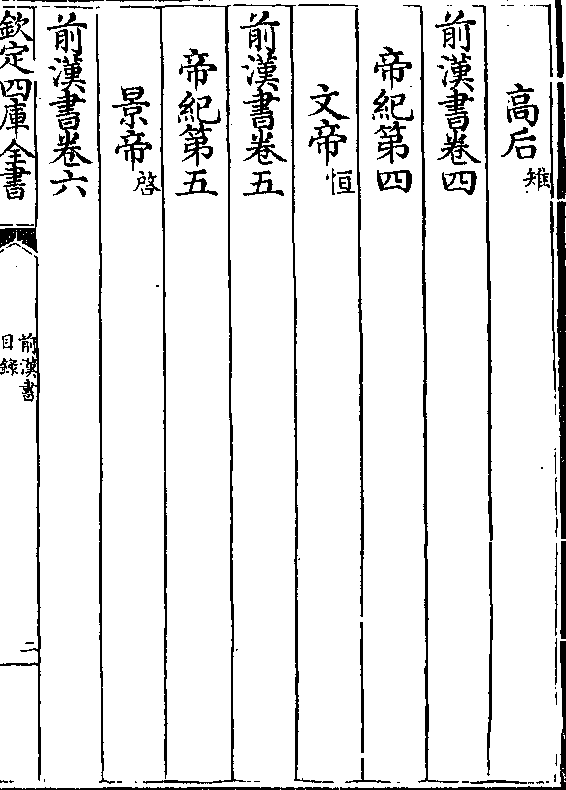 高后雉
前漢書卷四
帝紀第四
文帝恒
前漢書卷五
帝紀第五
景帝啓
前漢書卷六
欽定四庫全書
前漢書
目錄
二